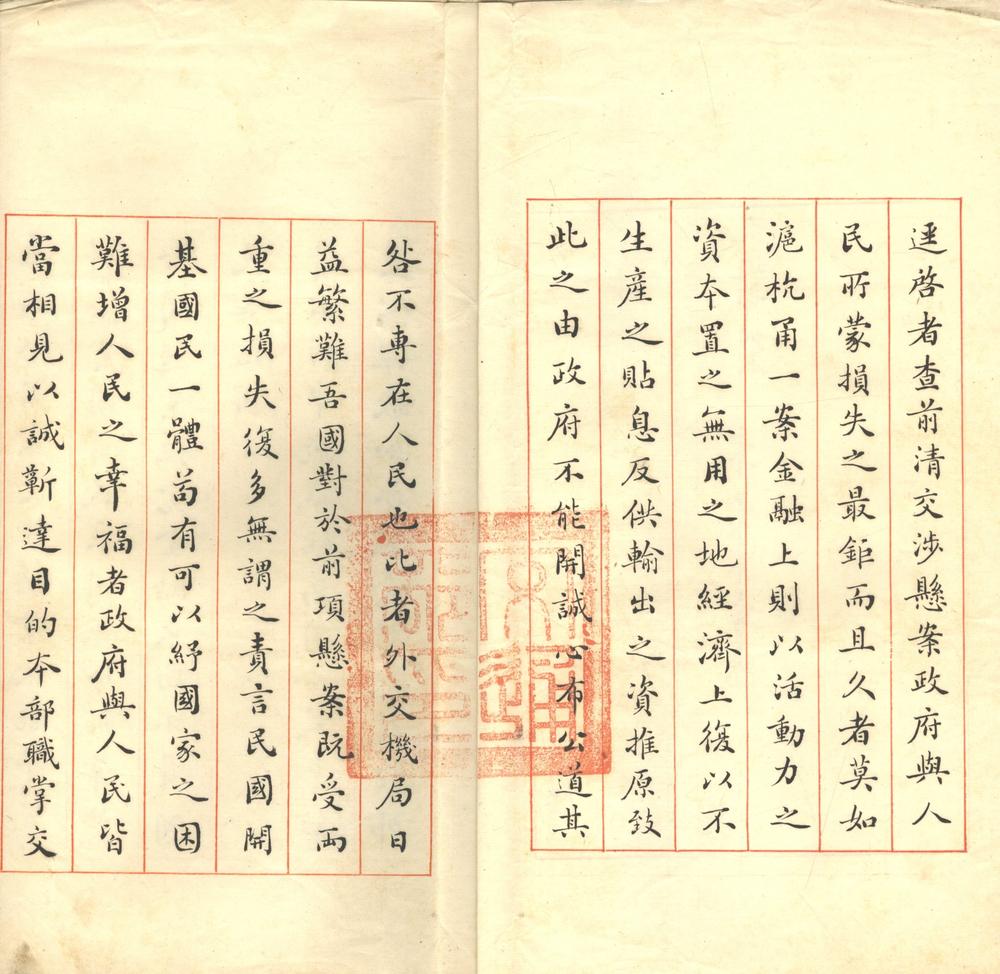 逕啓者查前清交涉懸案政府與人
民所蒙損失之最鉅而且久者莫如
滬杭甬一案金融上則以活動力之
資本置之無用之地經濟上復以不
生産之貼息反供輸出之資推原致
此之由政府不能開誠心布公道其
咎不專在人民也比者外交機局日
益繁難吾國對於前項懸案既受両
重之損失復多無謂之責言民國開
基國民一體苟有可以紓國家之困
難增人民之幸福者政府與人民皆
當相見以誠蘄達目的本部職掌交